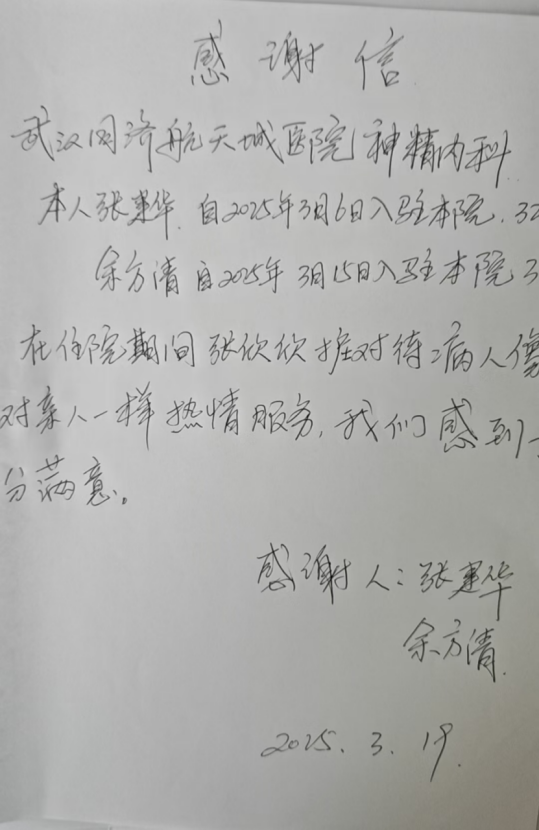 感谢信
武汉同济航天城医院神精内科
本人张建华.自2025年3月6日入驻本院.32
余方清自2025年3月15日入驻本院3
在住院期间张欣欣护对待病人像
对亲人一样热情服务,我们感到十
分满意。
感谢人:张建华
余方清.
2025.3.19.